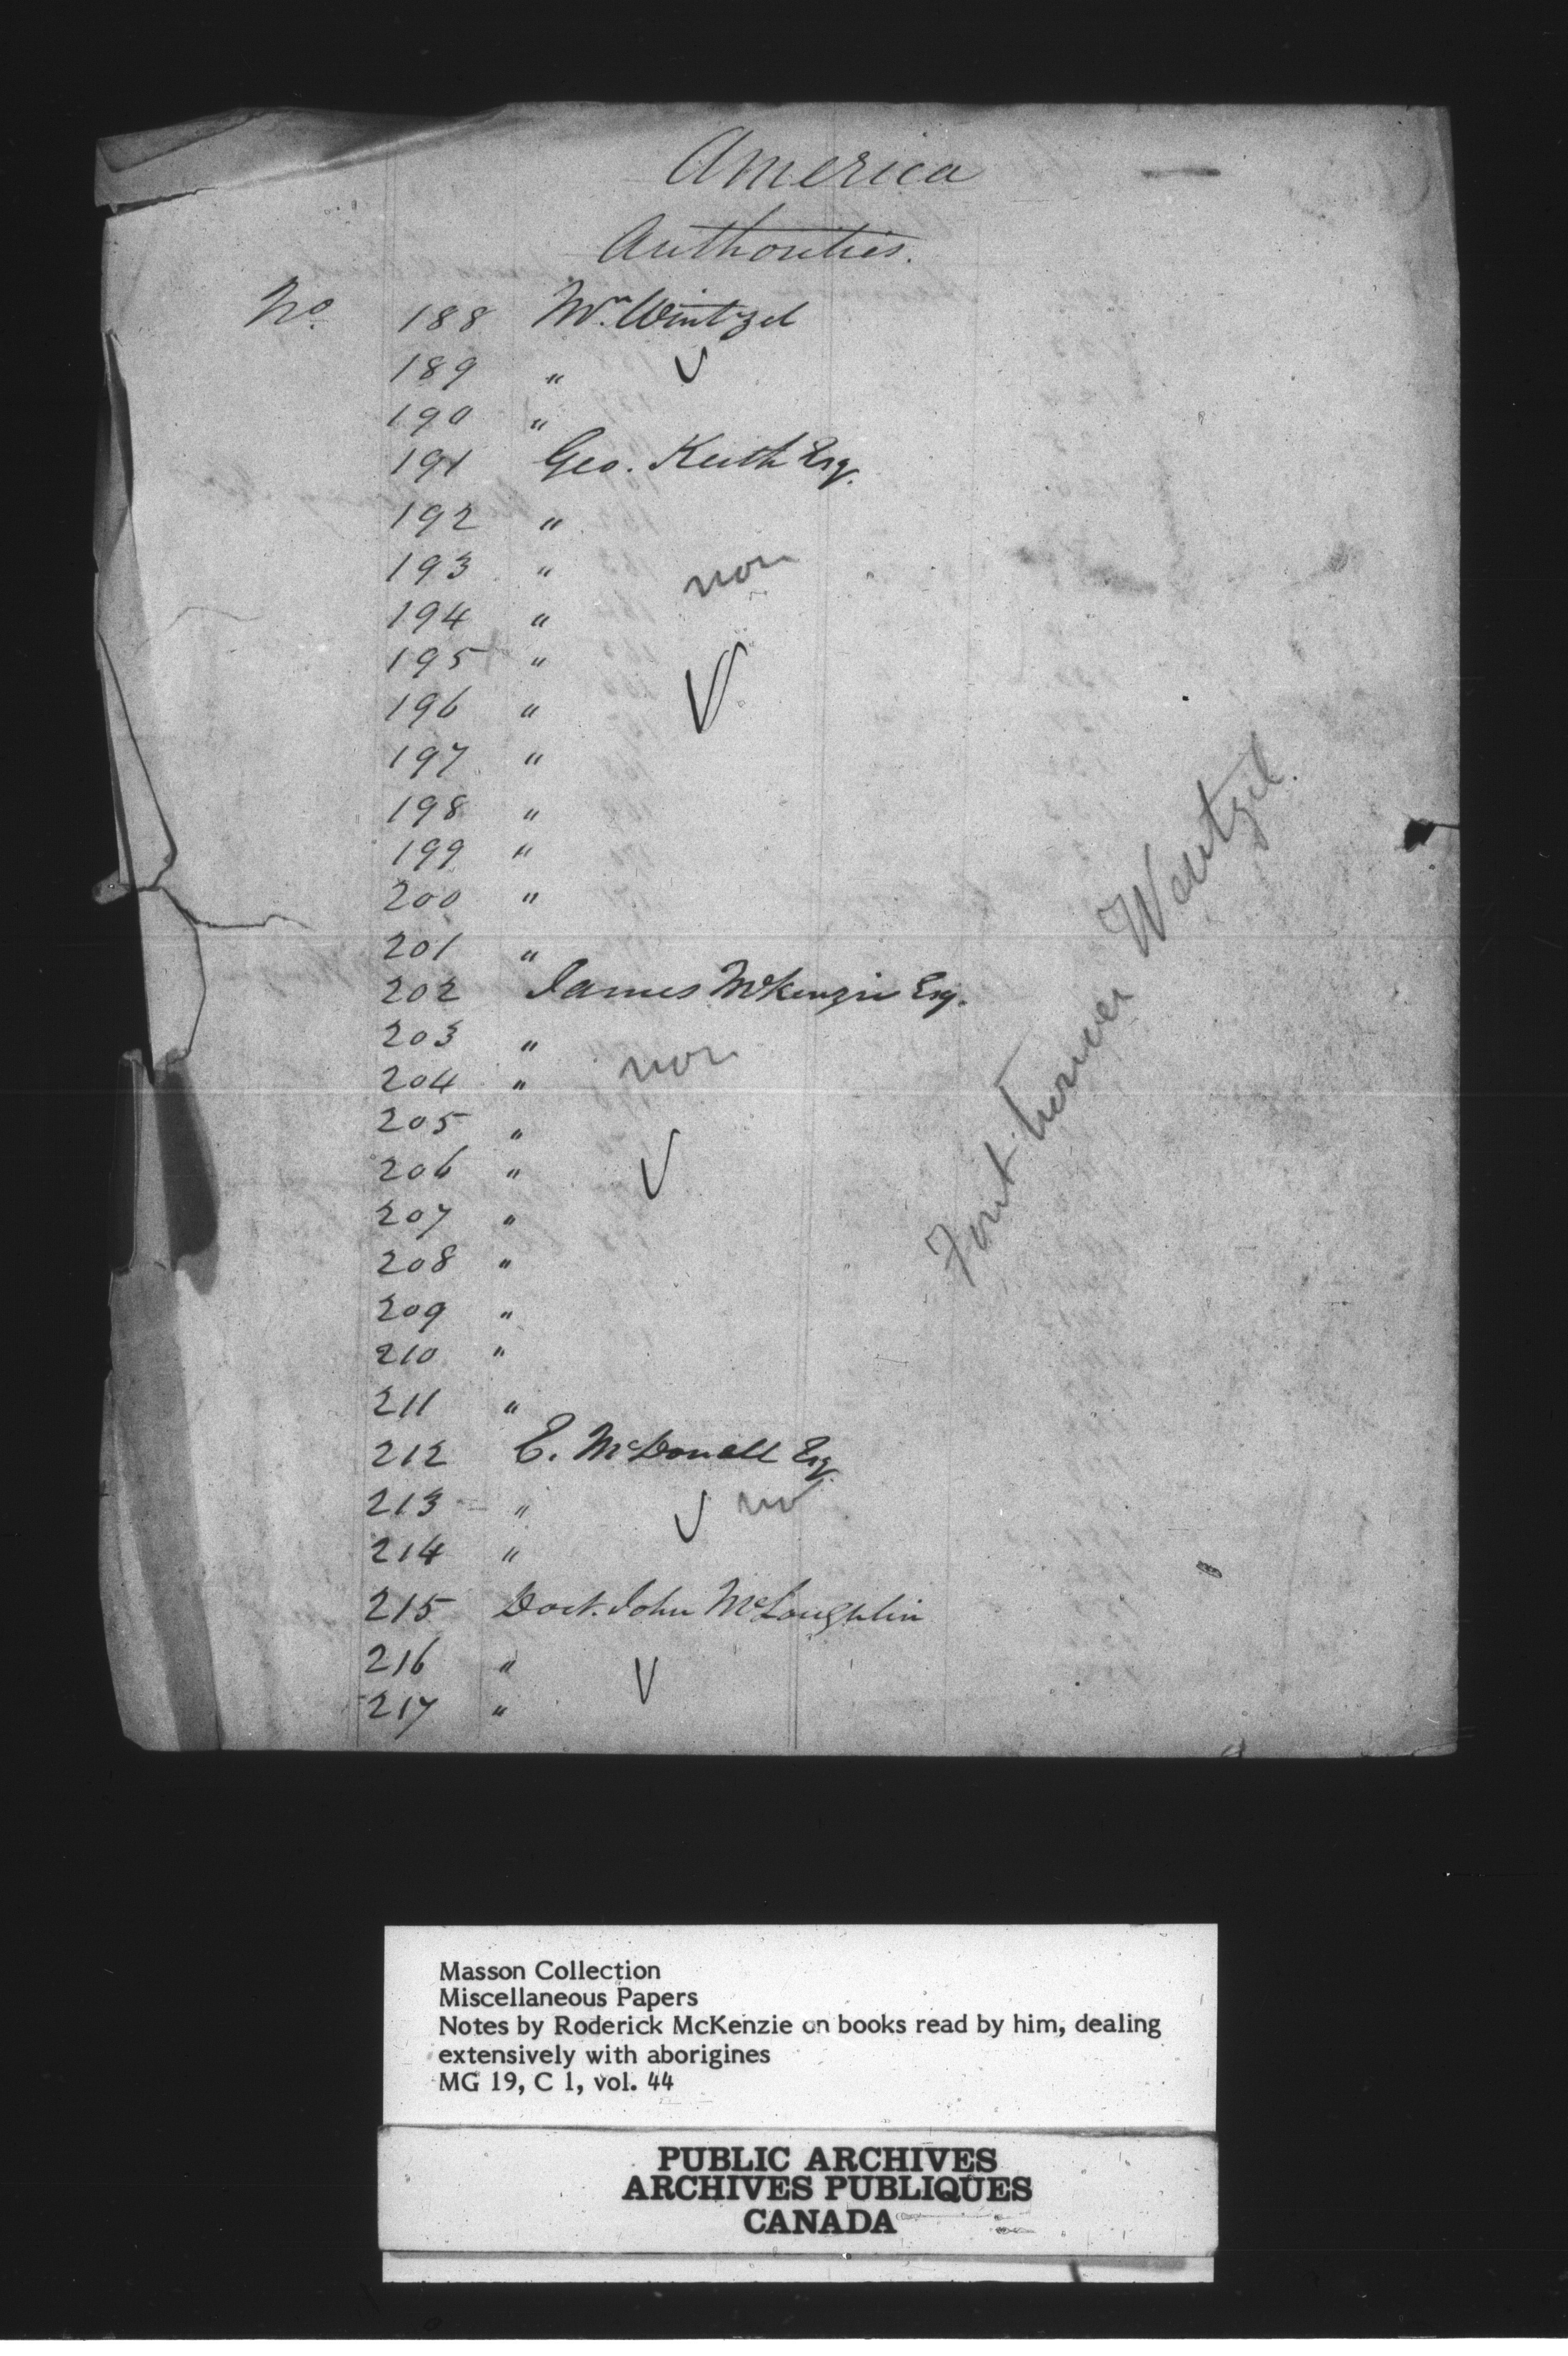 America
Authorities.
No. 188 Mr. Wintzel
189 "
190 "
191 Geo. Keith Esq.
192 "
193 " non
194 "
195 "
196 "
197 "
198 "
199 "
200 "
201 "
202 James McKenzie Esq.
203 "
204 " non
205 "
206 "
207 "
208 "
209 "
210 "
211 "
212 E. McDonell Esq.
213 "
214 "
215 Doct. John McLoughlin
216 "
217 "
Wentzel.
Masson Collection
Miscellaneous Papers
Notes by Roderick McKenzie on books read by him, dealing
extensively with aborigines
MG 19, C 1, vol. 44
PUBLIC ARCHIVES
ARCHIVES PUBLIQUES
CANADA